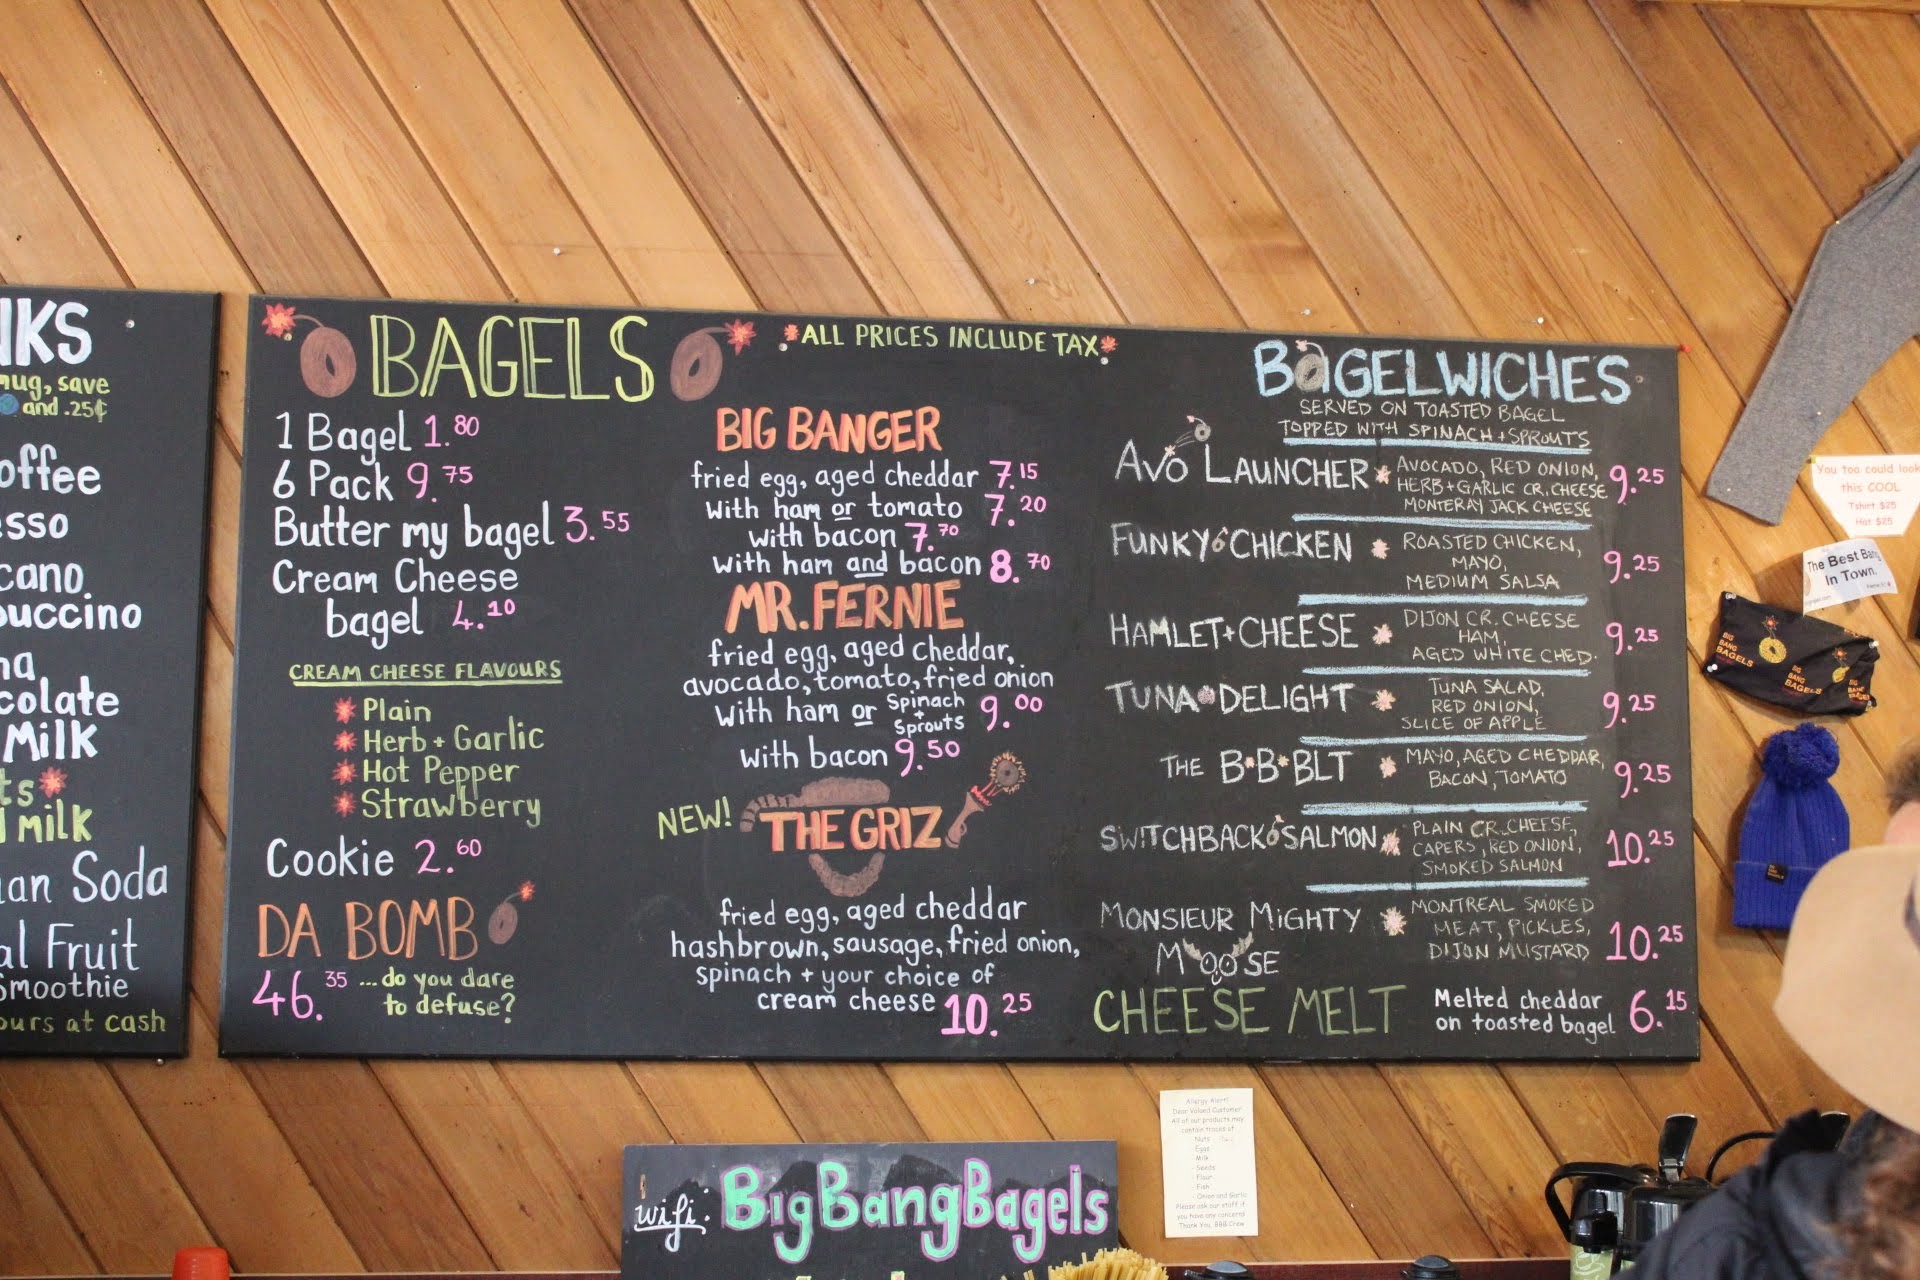 NKS
mug, save
and .25¢
offee
esso
cano
puccino
na
colate
Milk
ts
d milk
ian Soda
al Fruit
Smoothie
ours at cash
BAGELS
*ALL PRICES INCLUDE TAX*
1 Bagel 1.80
6 Pack 9.75
Butter my bagel 3.55
Cream Cheese
bagel 4.10
CREAM CHEESE FLAVOURS
* Plain
* Herb + Garlic
* Hot Pepper
* Strawberry
Cookie 2.60
DA BOMB
46.35 ...do you dare
to defuse?
BIG BANGER
fried egg, aged cheddar 7.15
with ham or tomato 7.20
with bacon 7.70
with ham and bacon 8.70
MR. FERNIE
fried egg, aged cheddar,
avocado, tomato, fried onion
with ham or Spinach + Sprouts 9.00
with bacon 9.50
NEW! THE GRIZ
fried egg, aged cheddar
hashbrown, sausage, fried onion,
spinach + your choice of
cream cheese 10.25
BAGELWICHES
SERVED ON TOASTED BAGEL
TOPPED WITH SPINACH + SPROUTS
AVO LAUNCHER * AVOCADO, RED ONION, 9.25
HERB + GARLIC CR. CHEESE
MONTERAY JACK CHEESE
FUNKY CHICKEN * ROASTED CHICKEN, 9.25
MAYO,
MEDIUM SALSA
HAMLET + CHEESE * DIJON CR. CHEESE 9.25
HAM,
AGED WHITE CHED.
TUNA DELIGHT * TUNA SALAD, 9.25
RED ONION,
SLICE OF APPLE
THE B*B*BLT * MAYO, AGED CHEDDAR, 9.25
BACON, TOMATO
SWITCHBACK SALMON * PLAIN CR. CHEESE, 10.25
CAPERS, RED ONION,
SMOKED SALMON
MONSIEUR MIGHTY * MONTREAL SMOKED
MOOSE MEAT, PICKLES, 10.25
DIJON MUSTARD
CHEESE MELT Melted cheddar 6.15
on toasted bagel
You too could look
this COOL
Tshirt $25
Hat $25
The Best Bang
In Town.
BIG
BANG
BAGELS
BIG
BANG
BAGELS
wifi: BigBangBagels
Allergy Alert!
Dear Valued Customer
All of our products may
contain traces of
Nuts
Eggs
Milk
Seeds
Flour
Fish
Onion and Garlic
Please ask our staff if
you have any concerns
Thank You, BBB Crew